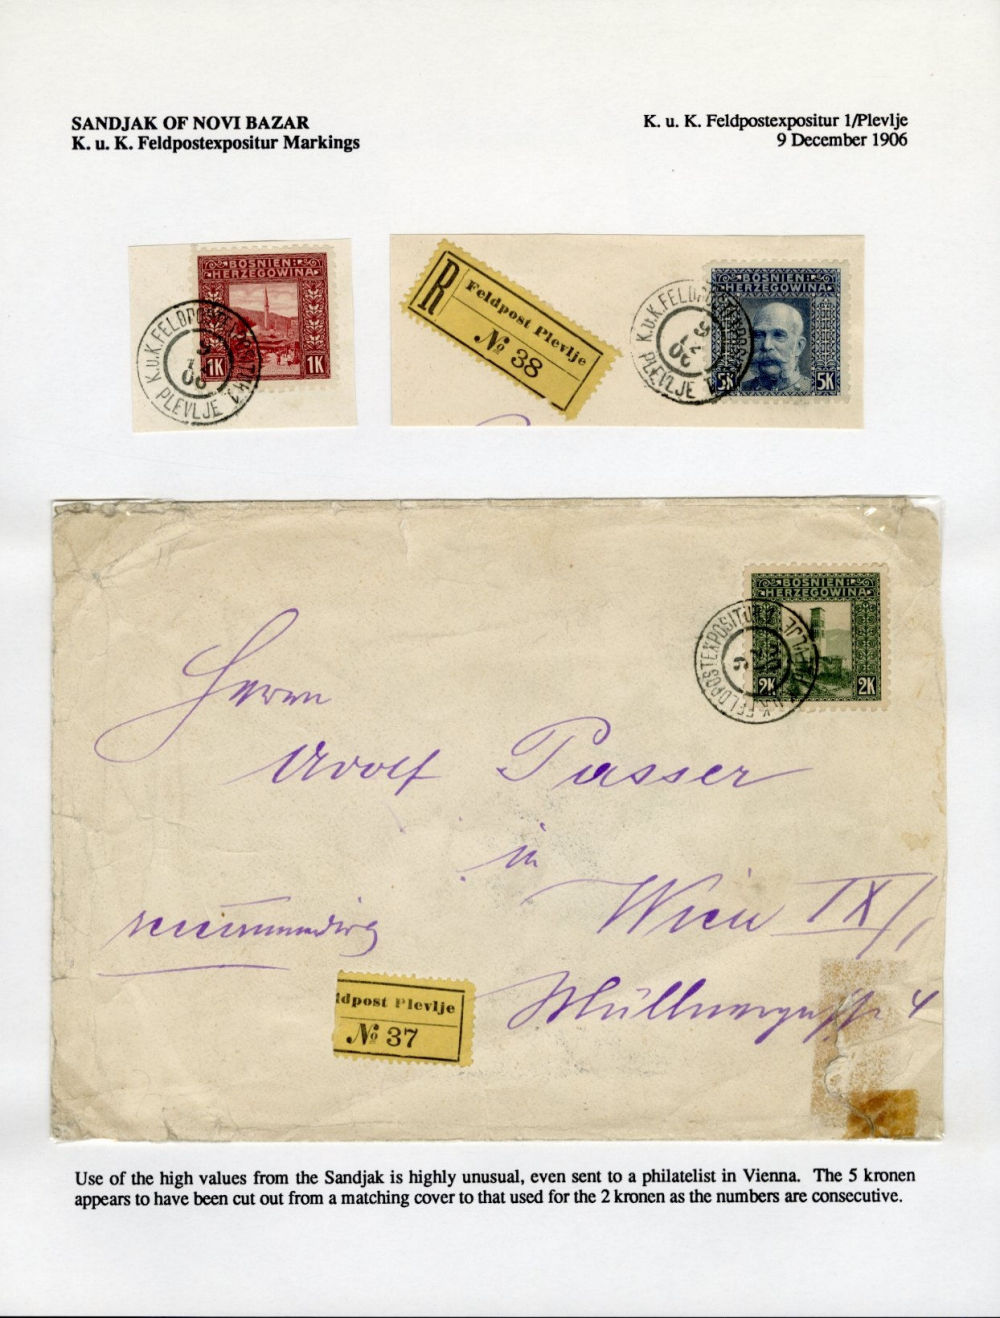 SANDJAK OF NOVI BAZAR
K. u. K. Feldpostexpositur Markings
K. u. K. Feldpostexpositur 1/Plevlje
9 December 1906
BOSNIEN
HERZEGOWINA
1K 1K
K.u.K. FELDPOSTEXPOSITUR 1
9
12
06
PLEVLJE
R
Feldpost Plevlje
№ 38
BOSNIEN
HERZEGOWINA
5K 5K
K.u.K. FELDPOSTEXPOSITUR 1
9
12
06
PLEVLJE
BOSNIEN
HERZEGOWINA
2K 2K
K.u.K. FELDPOSTEXPOSITUR
PLEVLJE
Herrn
Adolf Passer
in
Wien IX/1
Müllnergasse 4
ldpost Plevlje
№ 37
Use of the high values from the Sandjak is highly unusual, even sent to a philatelist in Vienna. The 5 kronen
appears to have been cut out from a matching cover to that used for the 2 kronen as the numbers are consecutive.